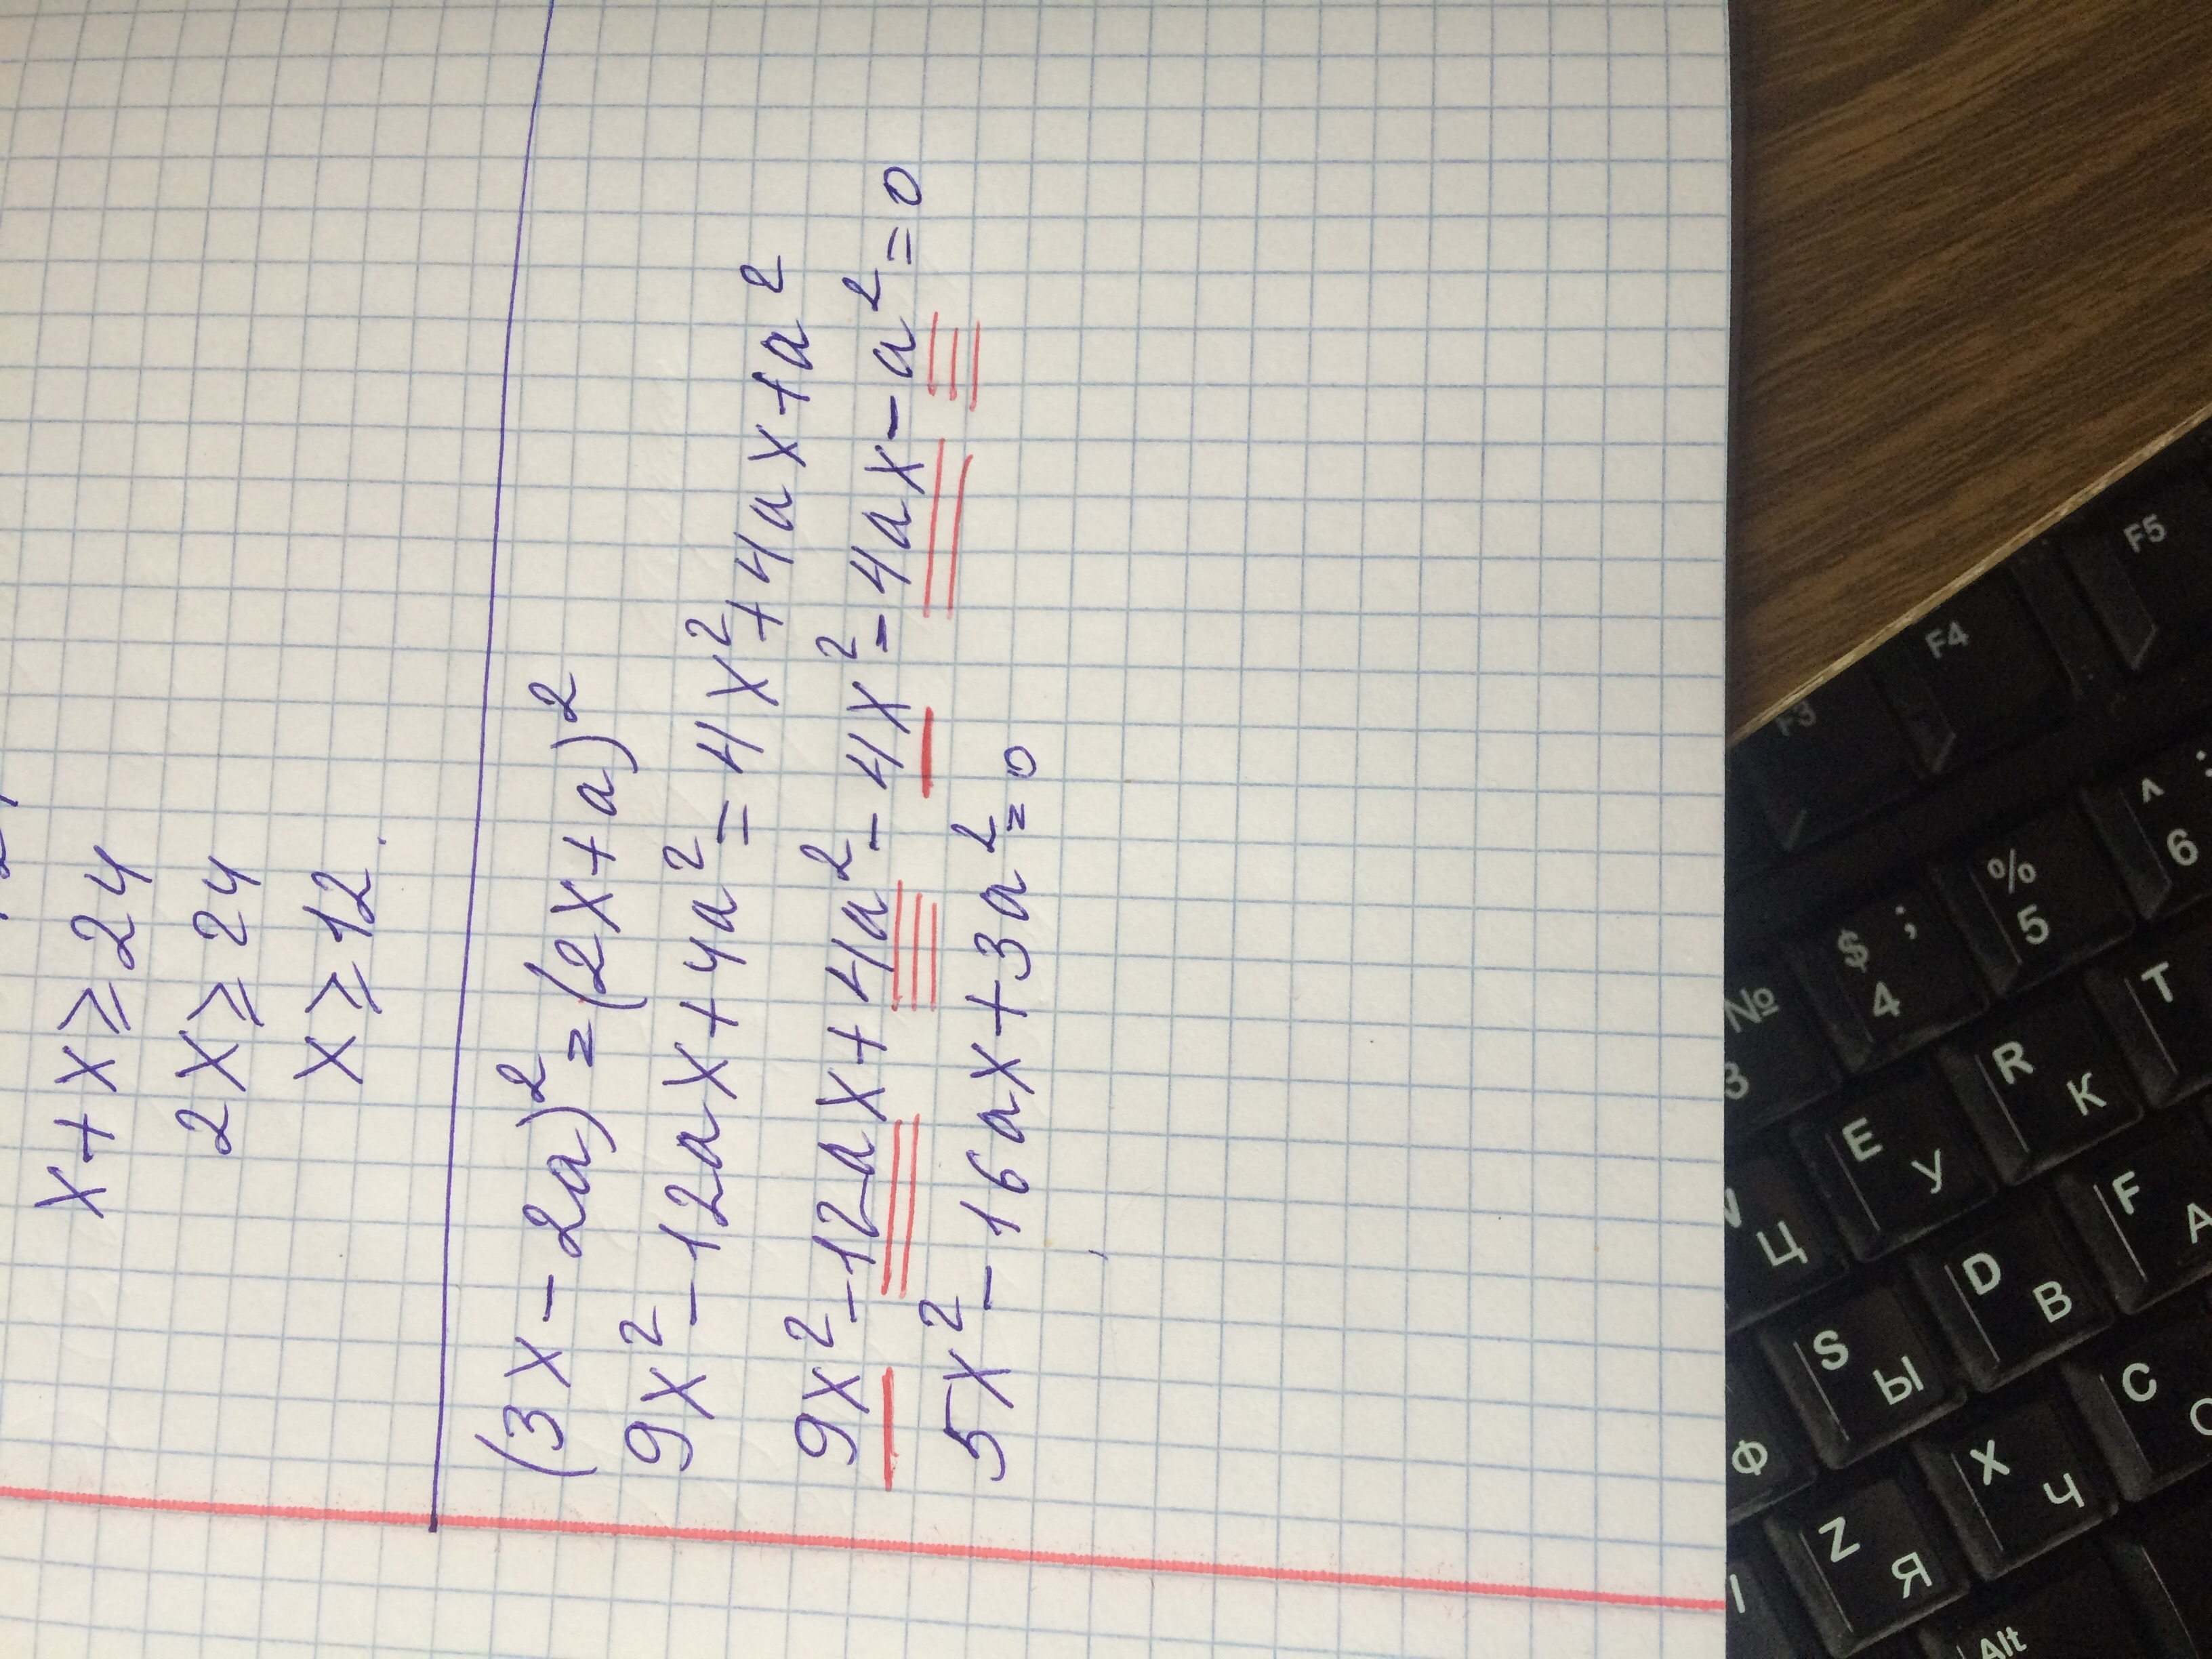 x+x⩾24
2x⩾24
x⩾12.
(3x-2a)²=(2x+a)²
9x²-12ax+4a²=4x²+4ax+a²
9x²-12ax+4a²-4x²-4ax-a²=0
5x²-16ax+3a²=0
F3 F4 F5
№ 3 $ ; 4 % 5 ^ : 6
Ц E У R К T
Ф S Ы D В F А
Z Я X Ч C С
Alt